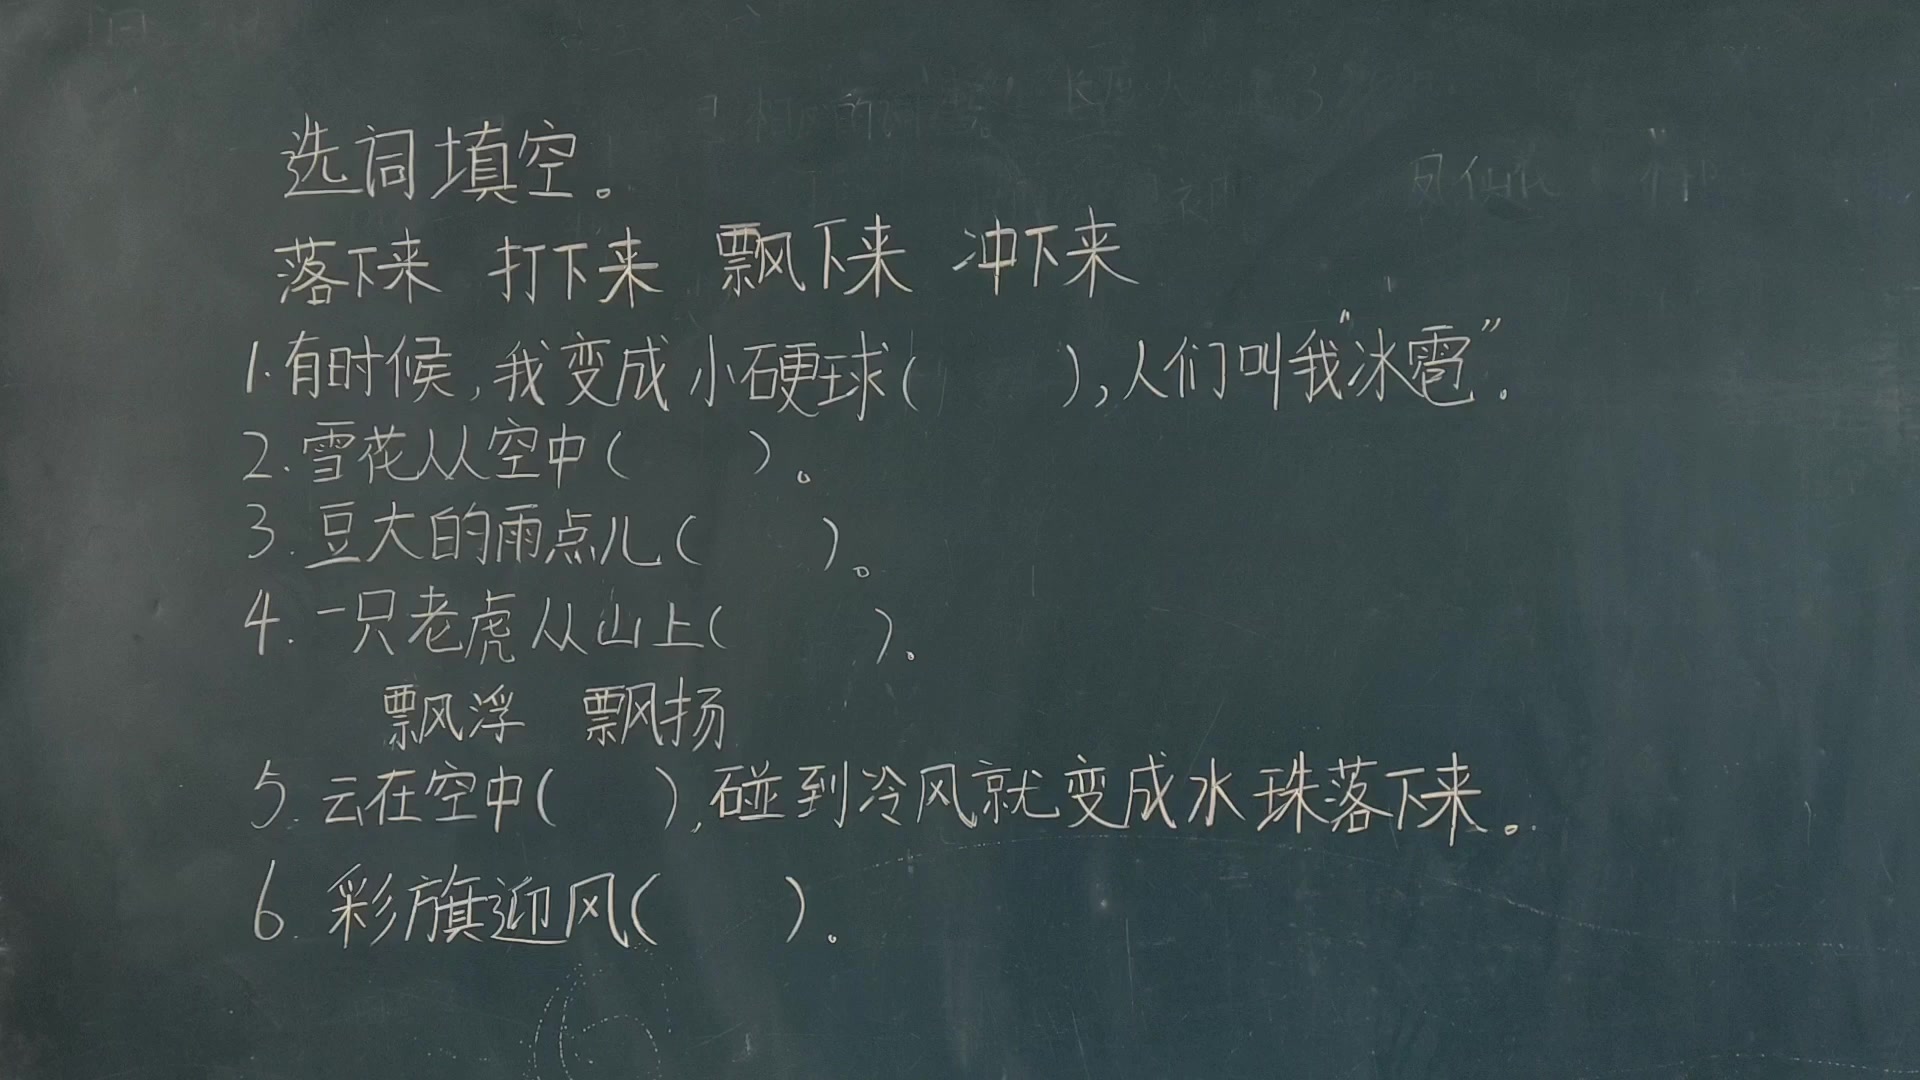 选词填空。
落下来 打下来 飘下来 冲下来
1.有时候,我变成小硬球(    ),人们叫我“冰雹”.
2.雪花从空中(    )。
3.豆大的雨点儿(    )。
4.一只老虎从山上(    )。
飘浮 飘扬
5.云在空中(    ),碰到冷风就变成水珠落下来。
6.彩旗迎风(    )。